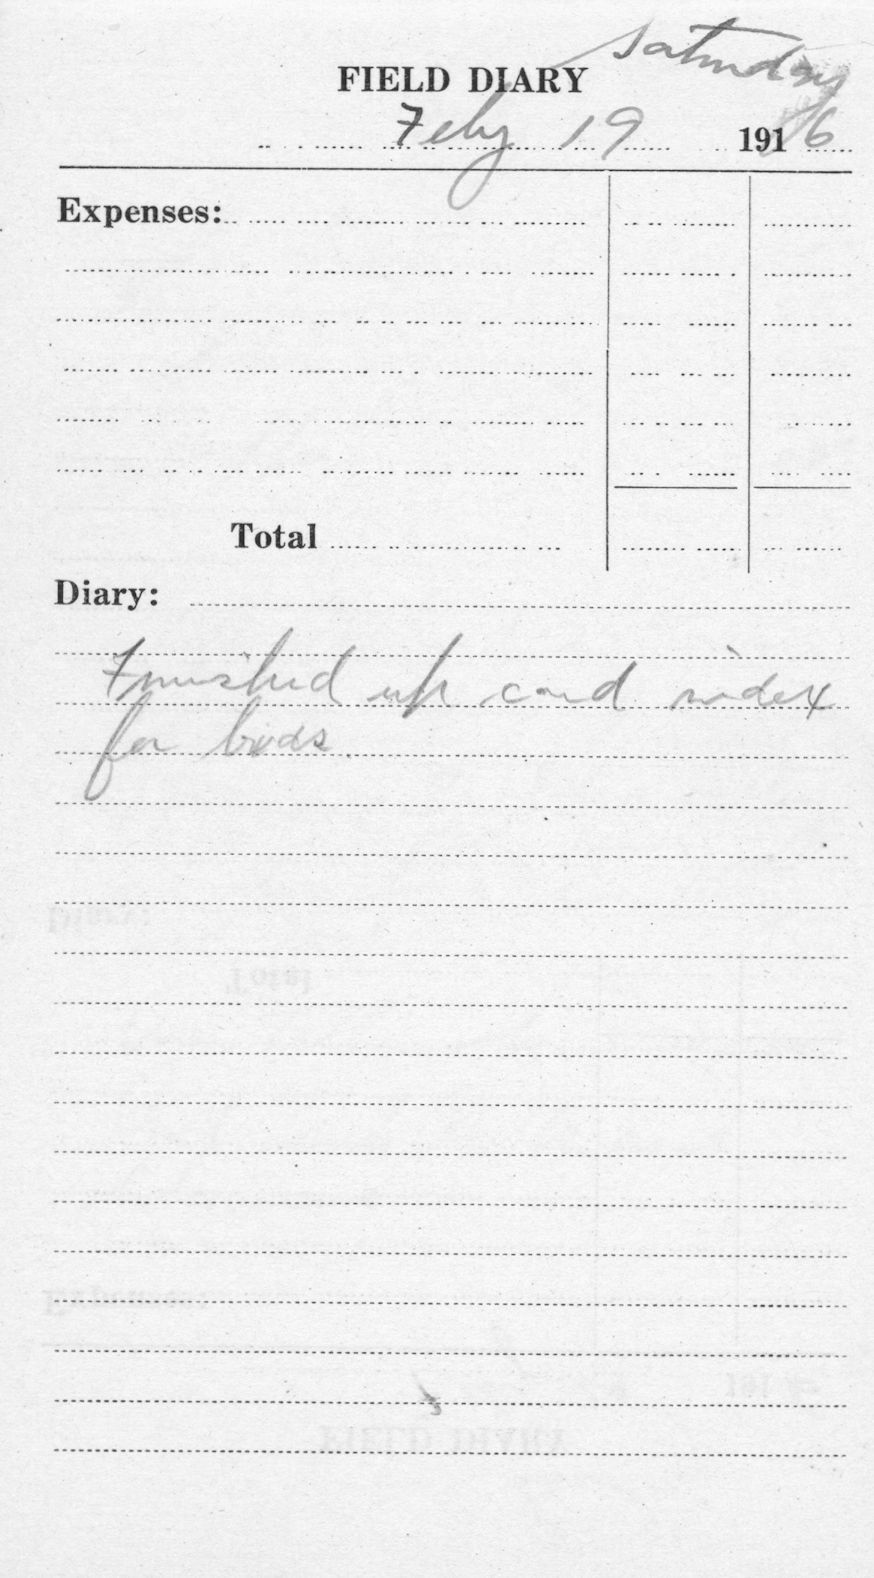 Saturday
FIELD DIARY
Feby 19 1916
Expenses:
Total
Diary:
Finished up card index
for birds.